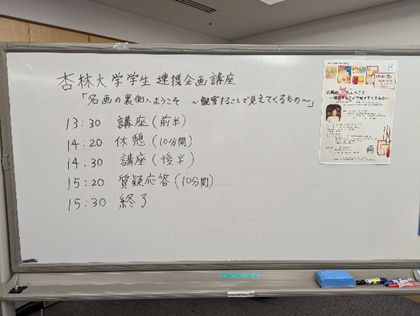 杏林大学学生連携企画講座
「名画の裏側へようこそ ～観察することで見えてくるもの～」
13:30 講座(前半)
14:20 休憩(10分間)
14:30 講座(後半)
15:20 質疑応答(10分間)
15:30 終了